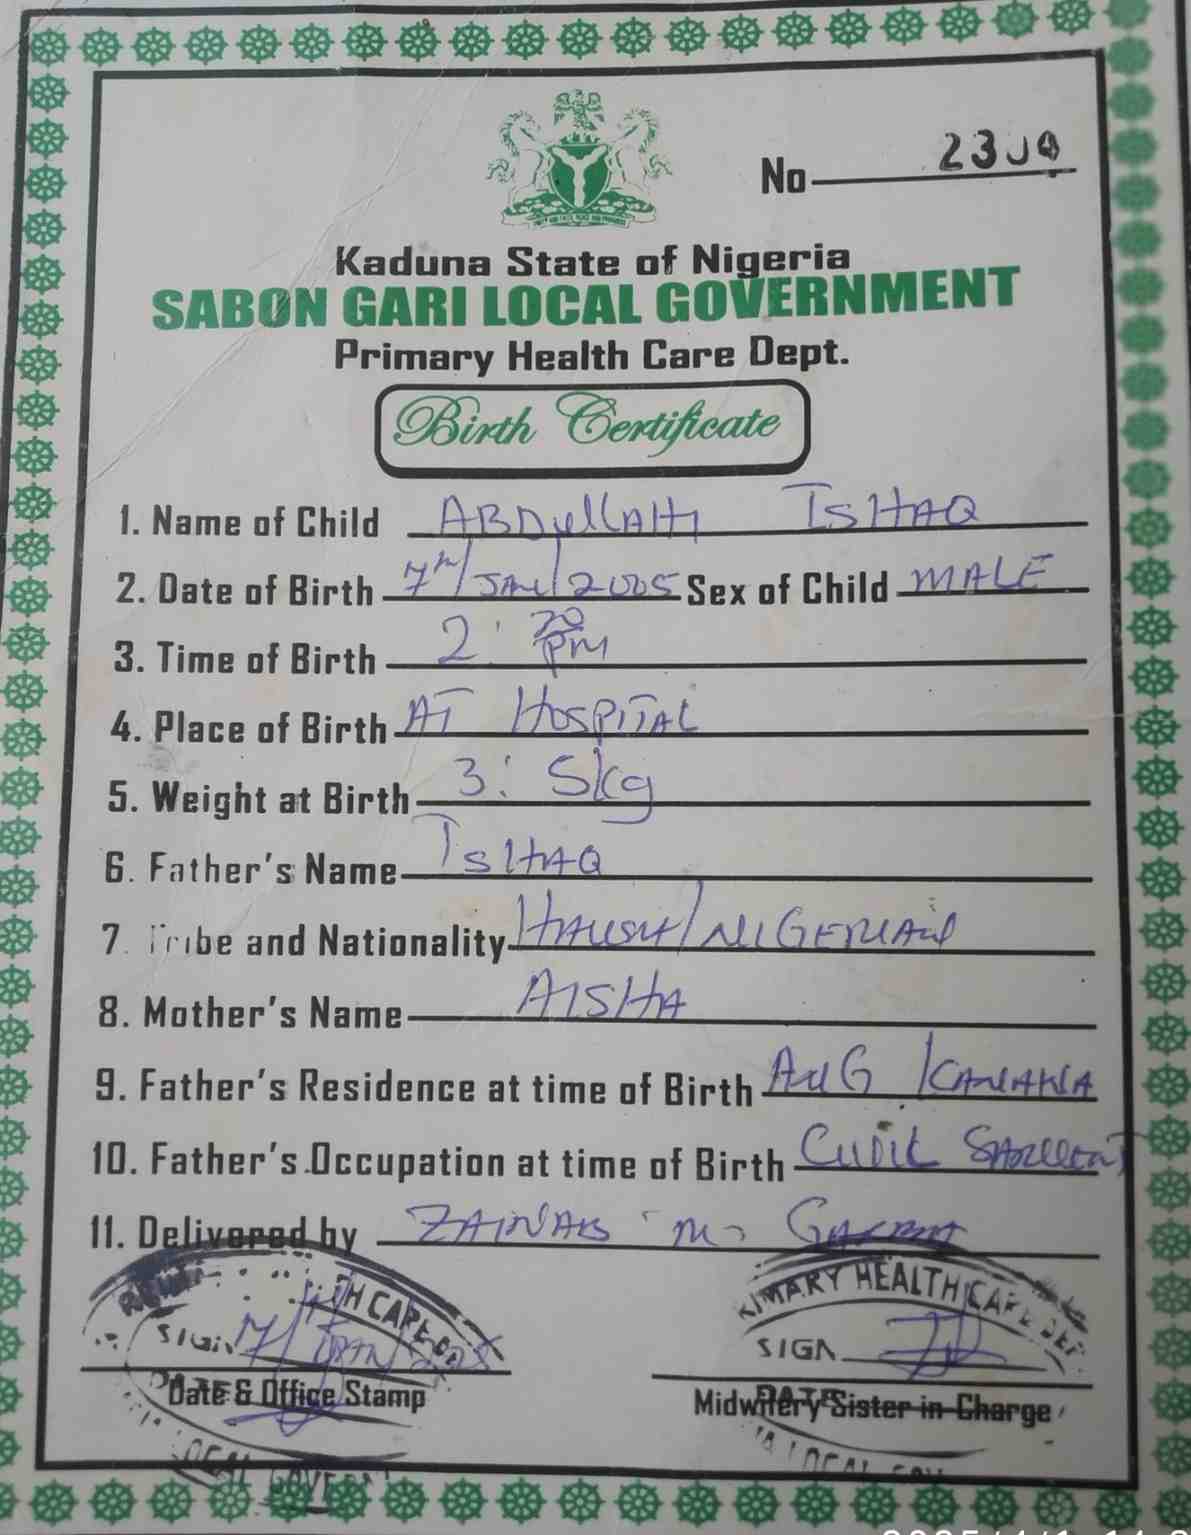 No 2304
Kaduna State of Nigeria
SABON GARI LOCAL GOVERNMENT
Primary Health Care Dept.
Birth Certificate
1. Name of Child ABDullAHI ISHAQ
2. Date of Birth 7th/JAN/2005 Sex of Child MALE
3. Time of Birth 2:20 pm
4. Place of Birth AT HOSPITAL
5. Weight at Birth 3:5kg
6. Father's Name ISHAQ
7. Tribe and Nationality HAUSA/NIGERIAN
8. Mother's Name AISHA
9. Father's Residence at time of Birth AUG KANAWA
10. Father's Occupation at time of Birth
11. Delivered by ZAINAB M. GARBA
TH CARE DE
IMARY HEALTH CARE DEP
SIGN 7/JAN/2005
SIGN
Date & Office Stamp
Midwifery Sister in-Charge
DATE
DATE
LOCAL GOVERN
A LOCAL GOV